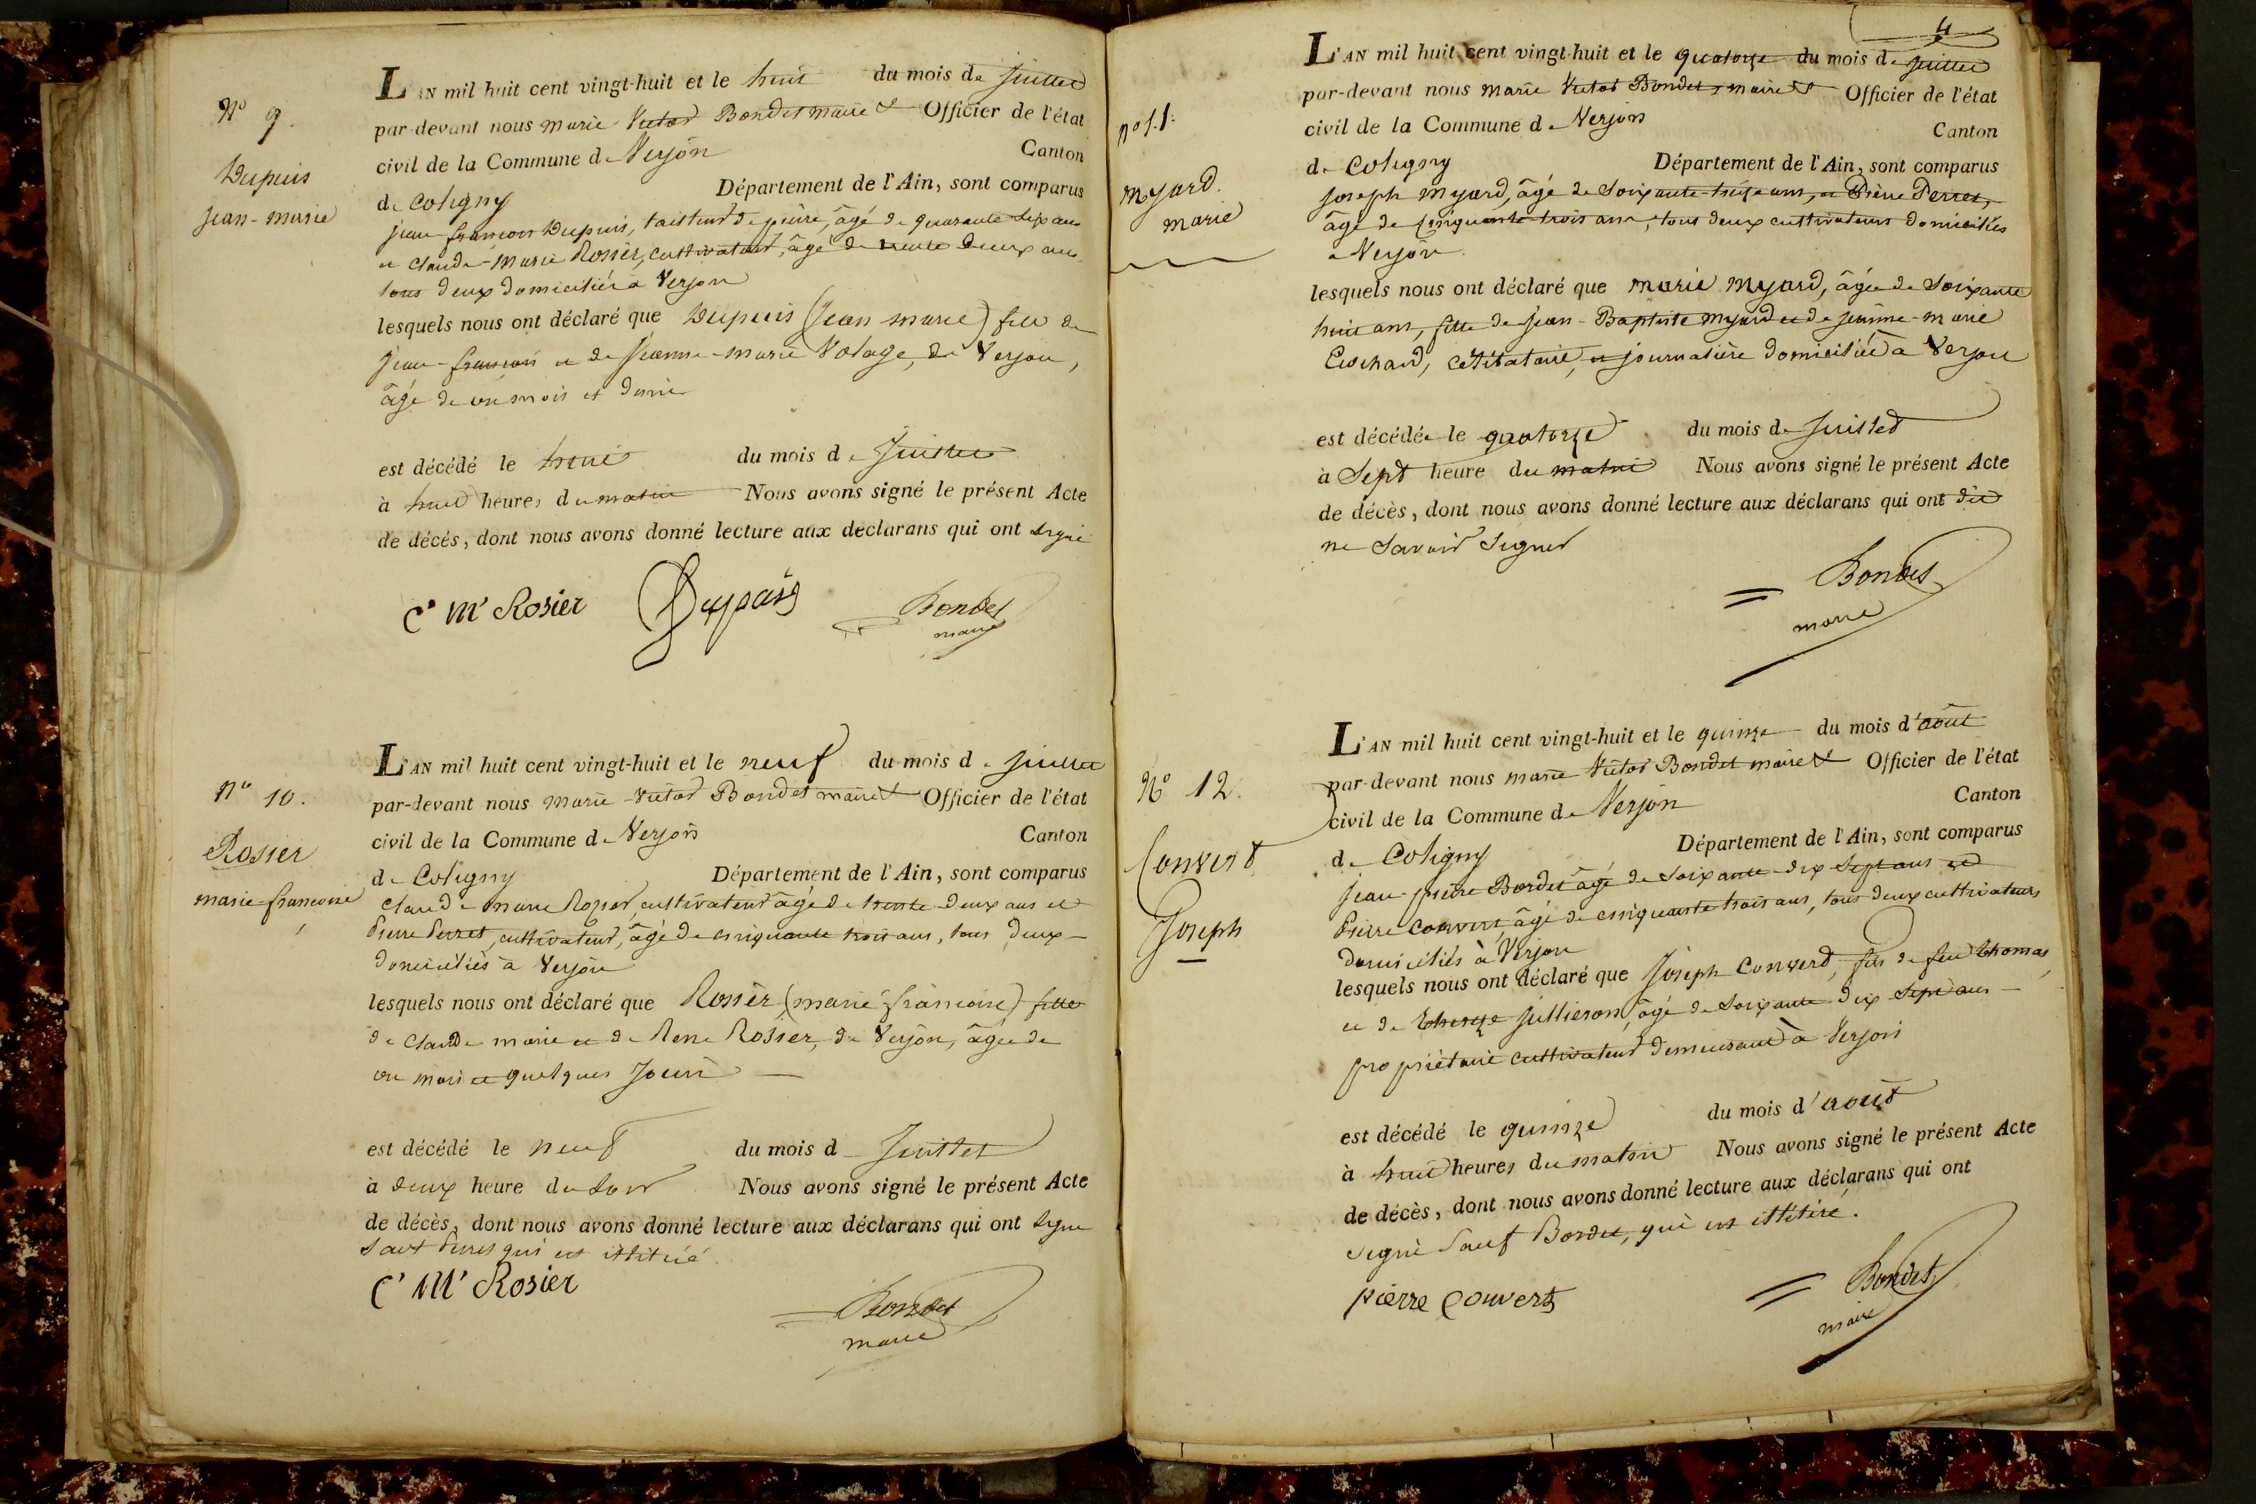 N° 9.
Dupuis
jean-marie
L'AN mil huit cent vingt-huit et le huit du mois de juillet
par-devant nous marie Victor Bondet maire & Officier de l'état
civil de la Commune de Verjon Canton
de Coligny Département de l'Ain, sont comparus
jean françois Dupuis, tailleur de pierre, âgé de quarante six ans
et claude-marie Rosier, cultivateur, âgé de trente deux ans
tous deux domiciliés à Verjon
lesquels nous ont déclaré que Dupuis (jean marie) fils de
jean-françois et de jeanne-marie Volage, de Verjon,
âgé de un mois et demi
est décédé le huit du mois de juillet
à huit heures du matin Nous avons signé le présent Acte
de décés, dont nous avons donné lecture aux déclarans qui ont signé
Ce Me Rosier Dupuis Bondet
maire
N° 10.
Rosier
marie françoise
L'AN mil huit cent vingt-huit et le neuf du mois de juillet
par-devant nous marie Victor Bondet maire & Officier de l'état
civil de la Commune de Verjon Canton
de Coligny Département de l'Ain, sont comparus
Claude marie Rosier, cultivateur âgé de trente deux ans et
Pierre Perret, cultivateur, âgé de cinquante trois ans, tous deux
domiciliés à Verjon
lesquels nous ont déclaré que Rosier (marie françoise) fille
de Claude marie et de Rosier, de Verjon, âgée de
un mois et quelques jours
est décédé le neuf du mois d juillet
à deux heure du soir Nous avons signé le présent Acte
de décès, dont nous avons donné lecture aux déclarans qui ont signé
sauf Perret qui est illitéré
Ce Me Rosier
Bondet
maire
4
n° 11.
Myard.
marie
L'AN mil huit cent vingt-huit et le quatorze du mois de juillet
par-devant nous marie Victor Bondet, maire & Officier de l'état
civil de la Commune de Verjon
Canton
de Coligny Département de l'Ain, sont comparus
joseph Myard, âgé de soixante treize ans, et Pierre Perret,
âgé de cinquante trois ans, tous deux cultivateurs domiciliés
à Verjon
lesquels nous ont déclaré que marie Myard, âgée de soixante
huit ans, fille de jean-Baptiste Myard et de jeanne-marie
célibataire, et journalière domiciliée à Verjon
est décédée le quatorze du mois de juillet
à sept heure du matin Nous avons signé le présent Acte
de décès, dont nous avons donné lecture aux déclarans qui ont dit
ne savoir signer
Bondet
maire
N° 12.
Convert
Joseph
L'AN mil huit cent vingt-huit et le quinze du mois d'août
par-devant nous marie Victor Bondet maire & Officier de l'état
civil de la Commune de Verjon Canton
de Coligny Département de l'Ain, sont comparus
jean-pierre Bordet âgé de soixante-dix sept ans et
Pierre Convert âgé de cinquante trois ans, tous deux cultivateurs
domiciliés à Verjon
lesquels nous ont déclaré que Joseph Convert, fils de feu thomas,
et de therèze jullieron, âgé de soixante-dix sept ans
propriétaire cultivateur demeurant à Verjon
est décédé le quinze du mois d'août
à huit heures du matin Nous avons signé le présent Acte
de décès, dont nous avons donné lecture aux déclarans qui ont
signé sauf Bordet, qui est illitéré.
pierre convert Bondet
maire